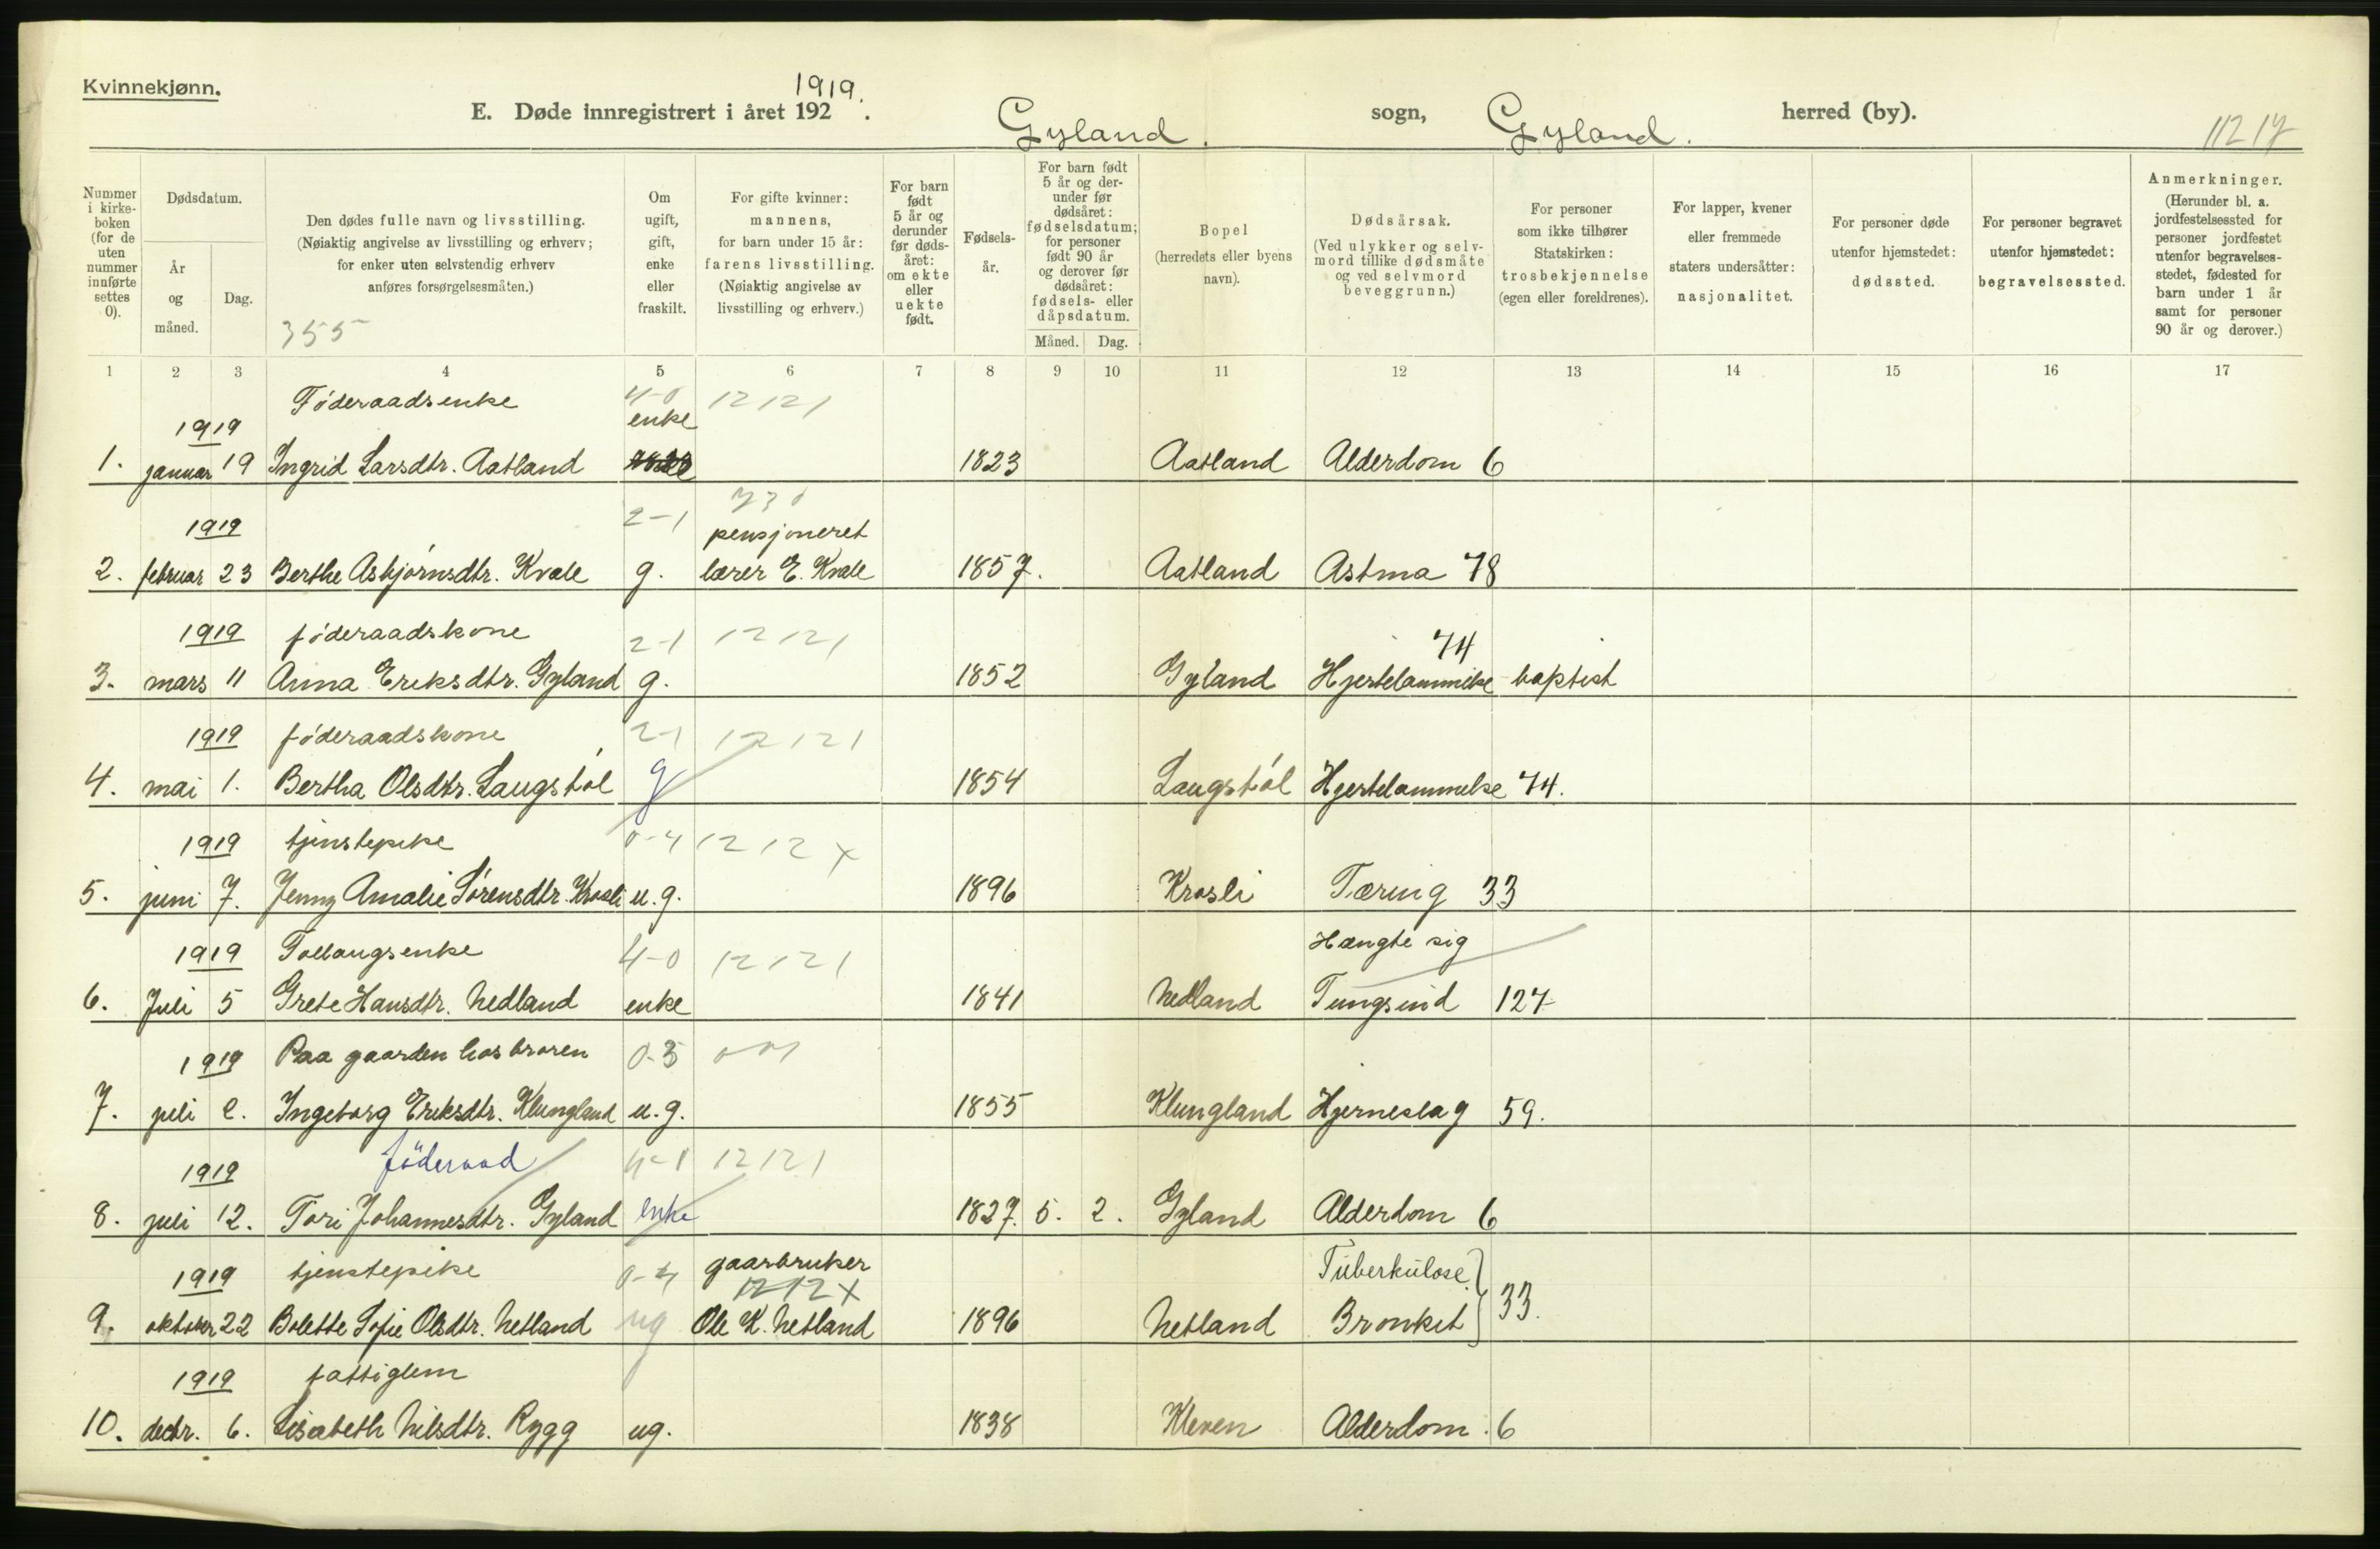 Kvinnekjønn.
1919.
E. Døde innregistrert i året 192 . Gyland. sogn, Gyland. herred (by).
11217
Nummer i kirke-boken (for de uten nummer innførte settes 0).
Dødsdatum.
År og måned.
Dag.
Den dødes fulle navn og livsstilling.
(Nøiaktig angivelse av livsstilling og erhverv;
for enker uten selvstendig erhverv
anføres forsørgelsesmåten.)
355
Om ugift, gift, enke eller fraskilt.
For gifte kvinner:
mannens,
for barn under 15 år:
farens livsstilling.
(Nøiaktig angivelse av
livsstilling og erhverv.)
For barn født 5 år og derunder før døds-året: om ekte eller uekte født.
Fødsels-år.
For barn født 5 år og der-under før dødsåret: fødselsdatum; for personer født 90 år og derover før dødsåret: fødsels- eller dåpsdatum.
Måned. Dag.
Bopel
(herredets eller byens
navn).
Dødsårsak.
(Ved ulykker og selv-
mord tillike dødsmåte
og ved selvmord
beveggrunn.)
For personer
som ikke tilhører
Statskirken:
trosbekjennelse
(egen eller foreldrenes).
For lapper, kvener
eller fremmede
staters undersåtter:
nasjonalitet.
For personer døde
utenfor hjemstedet:
dødssted.
For personer begravet
utenfor hjemstedet:
begravelsessted.
Anmerkninger.
(Herunder bl. a.
jordfestelsessted for
personer jordfestet
utenfor begravelses-
stedet, fødested for
barn under 1 år
samt for personer
90 år og derover.)
1 2 3 4 5 6 7 8 9 10 11 12 13 14 15 16 17
Føderaadsenke 4-0 12121
1919 enke
1. januar 19 Ingrid Larsdtr. Aatland 1823 Aatland Alderdom 6
730
1919 2-1 pensjoneret
2. februar 23 Berthe Asbjørnsdtr. Kvale g. lærer E. Kvale 1857. Aatland Astma 78
1919 føderaadskone 2-1 12121 74
3. mars 11 Anna Eriksdtr. Gyland g. 1852 Gyland Hjertelammelse baptist
1919 føderaadskone 2-1 12121
4. mai 1. Bertha Olsdtr. Laugstøl g 1854 Laugstøl Hjertelammelse 74.
1919 tjenstepike 0-4 1212x
5. juni 7. Jenny Amalie Sørensdtr. Krosli u.g. 1896 Krosli Tæring 33
1919 4-0 12121 Hængte sig
6. Juli 5 Grete Hansdtr. Nedland enke 1841 Nedland Tungsind 127
1919 Paa gaarden hos broren 0-3
7. juli 2. Ingeborg Eriksdtr. Klungland u.g. 1855 Klungland Hjerneslag 59.
1919 föderaad 4-1 12121
8. juli 12. Tori Johannesdtr. Gyland enke 1827. 5. 2. Gyland Alderdom 6
1919 tjenstepike 0-4 gaarbruker Tuberkulose
1212x
9. oktober 22 Bolette Sofie Olsdtr. Netland ug Ole K. Netland 1896 Netland Bronkit 33.
1919 fattiglem
10. decbr. 6. Lisabeth Nilsdtr. Rygg ug. 1838 Kleven Alderdom. 6